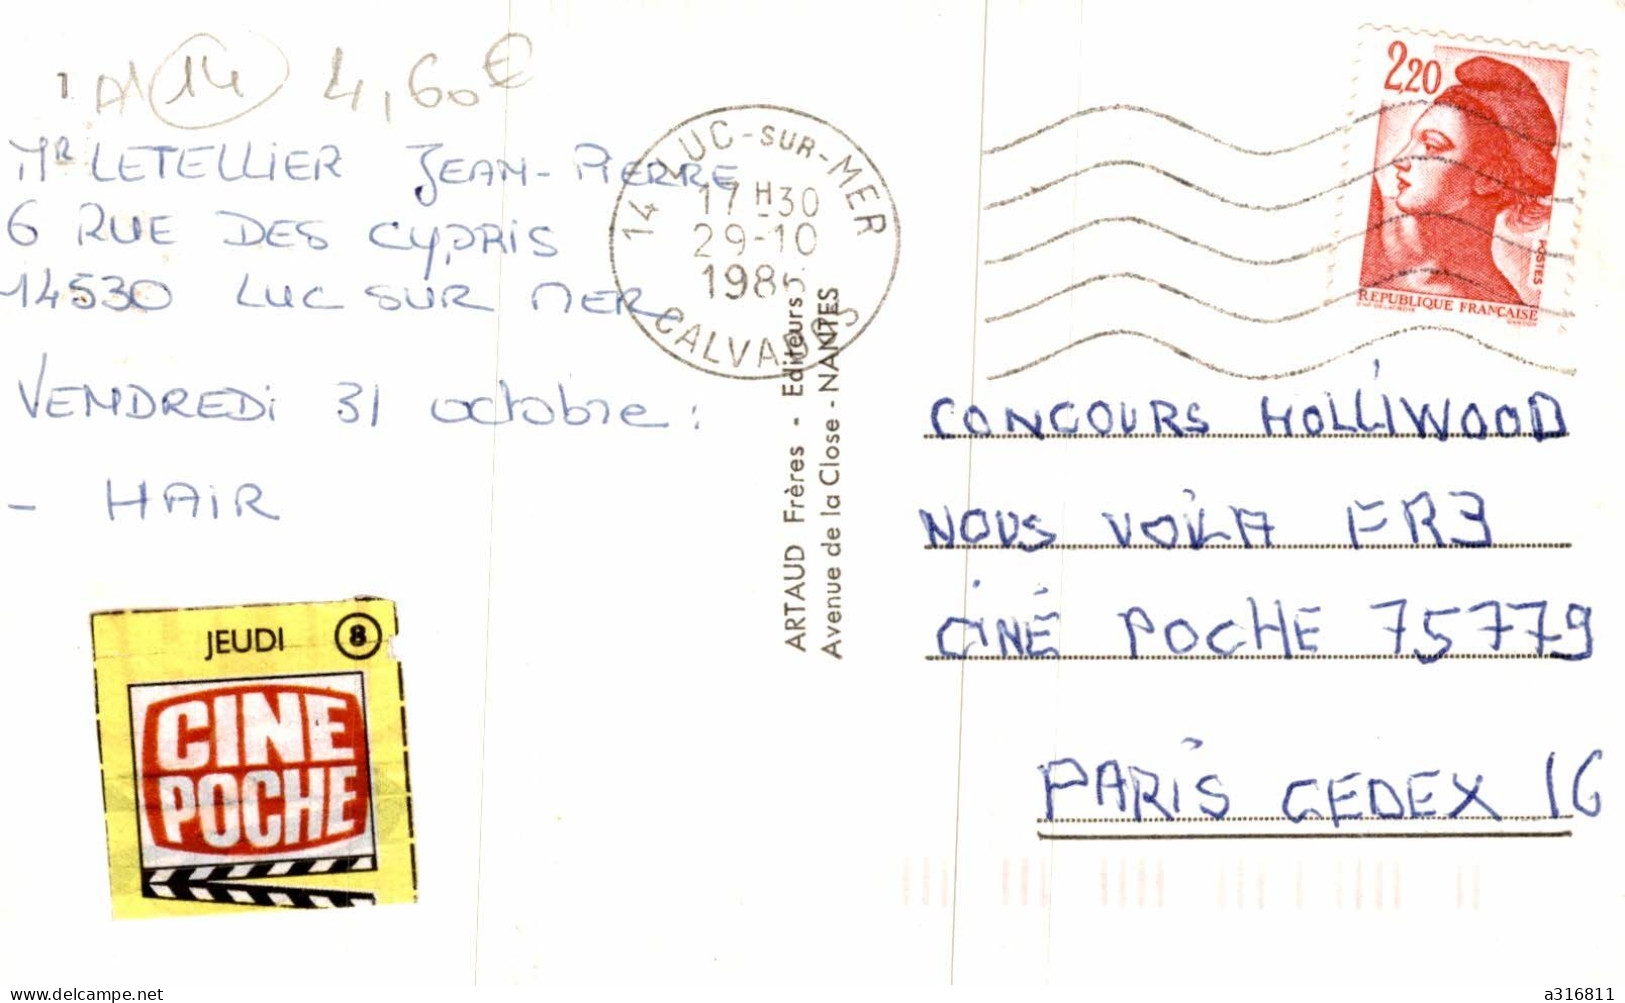 A 14 4,60€
MR LETELLIER JEAN-PIERRE
6 RUE DES CYPRIS
14530 LUC SUR MER
VENDREDI 31 octobre :
- HAIR
JEUDI 8
CINE
POCHE
14 LUC-SUR-MER
17H30
29-10
1986
CALVADOS
ARTAUD Frères - Editeurs
Avenue de la Close - NANTES
2,20
POSTES
REPUBLIQUE FRANÇAISE
CONCOURS HOLLIWOOD
NOUS VOILA FR3
CINÉ POCHE 75779
PARIS CEDEX 16
a316811